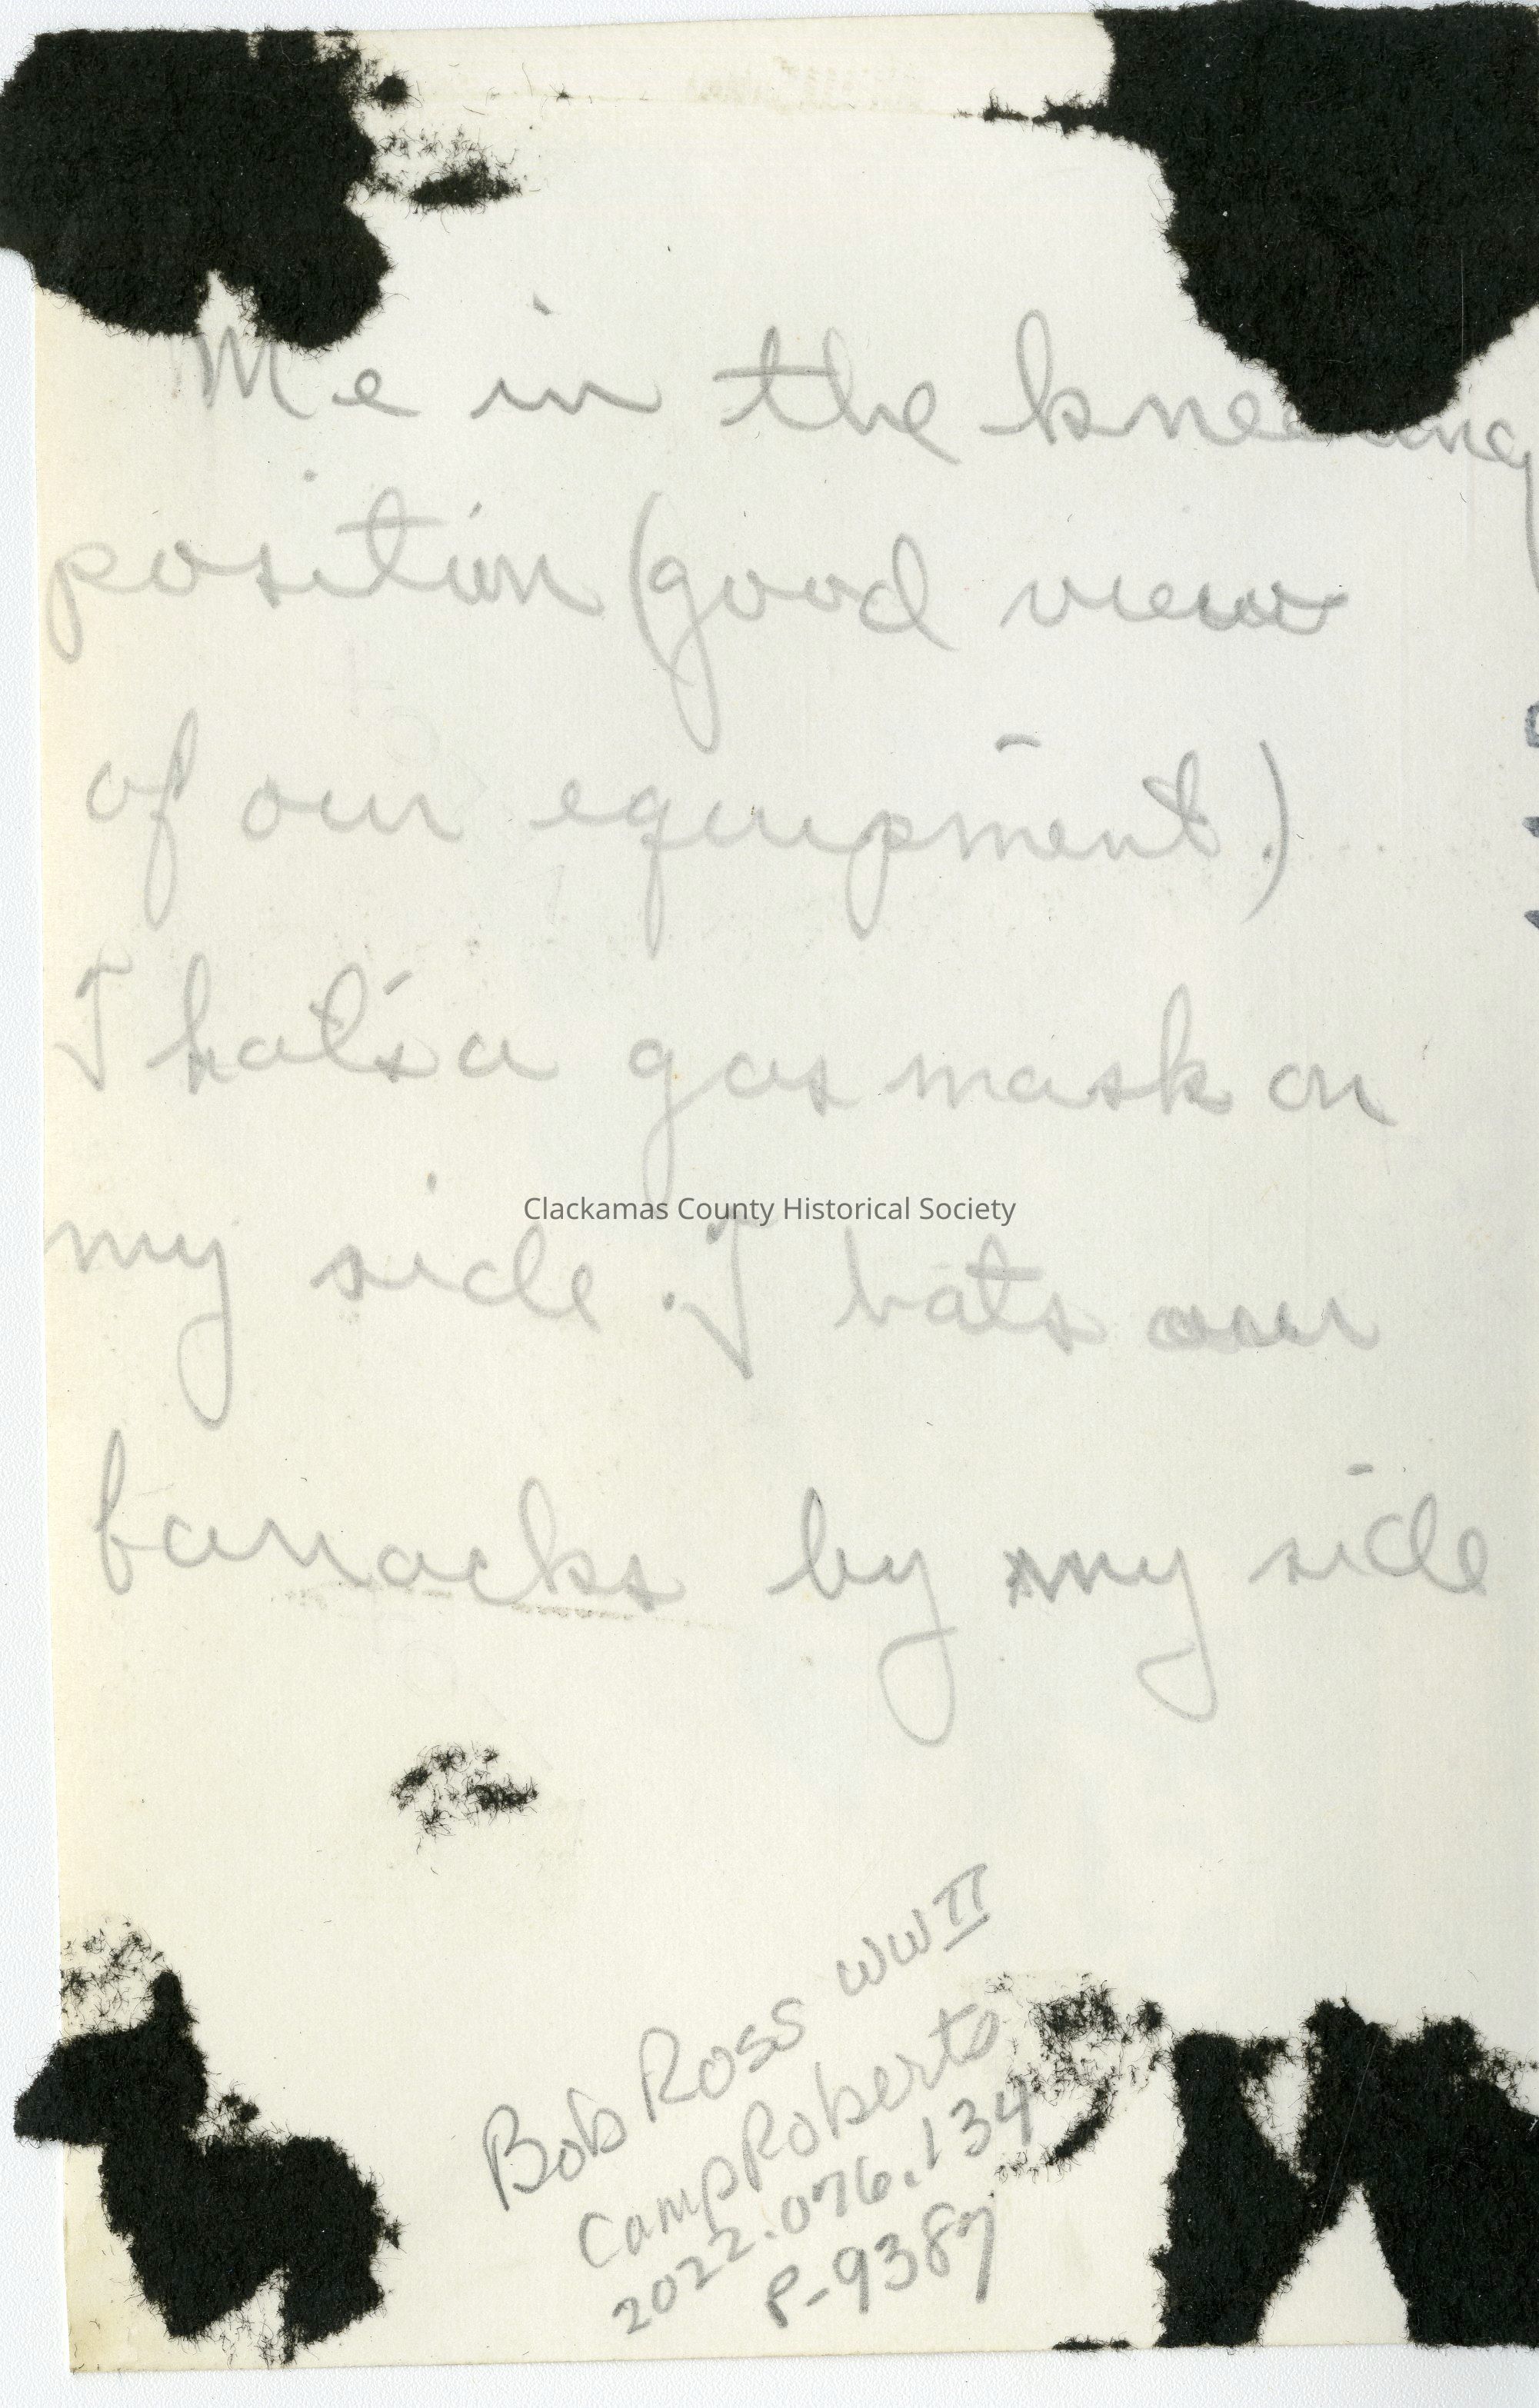 Me in the kneeling
position (good view
of our equipment.)
That's a gas mask on
my side. Thats our
barracks by my side
Clackamas County Historical Society
Bob Ross WWII
Camp Roberts
2022.076.134
P-9387